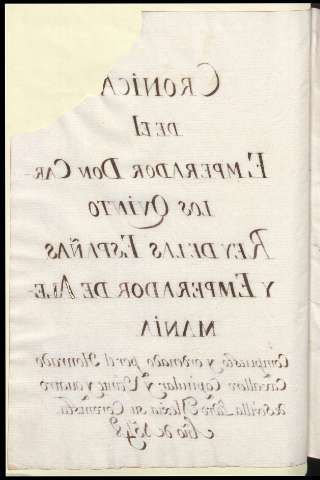 CRONICA
DEEL
EMPERADOR DON CAR-
LOS QVINTO
REY DE LAS ESPAÑAS
Y EMPERADOR DE ALE-
MANIA
Compuesto y ordenado por el Honrado
Cavallero Capitular y Veinte y quatro
de Sevilla Pedro Mexia su Coronista
Año de 1548